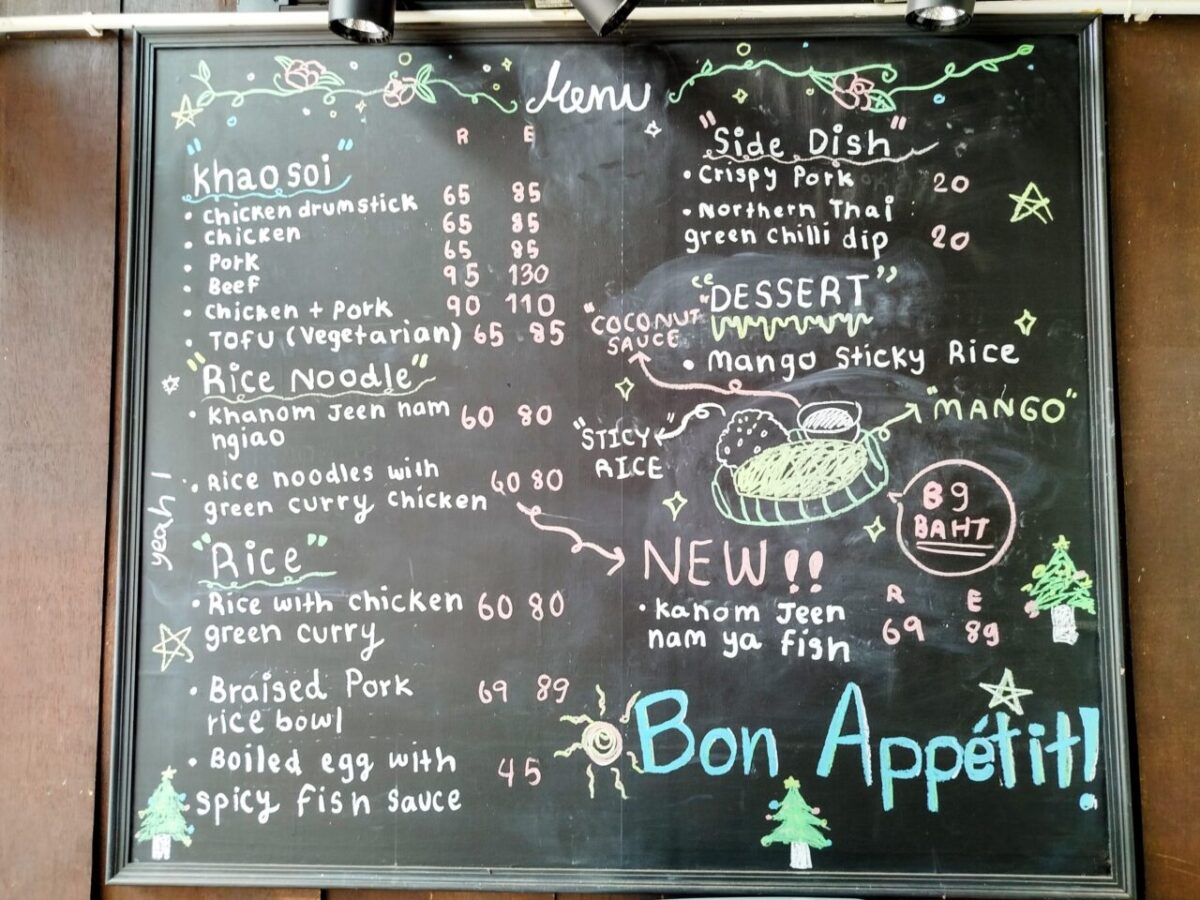 Menu
R E
"Khao soi"
• Chicken drumstick 65 85
• Chicken 65 85
• Pork 65 85
• Beef 95 130
• Chicken + Pork 90 110
• TOFU (Vegetarian) 65 85
"Rice Noodle"
• Khanom Jeen nam 60 80
ngiao
• Rice noodles with 60 80
green curry chicken
"Rice"
• Rice with chicken 60 80
green curry
• Braised Pork 69 89
rice bowl
• Boiled egg with 45
spicy fish sauce
yeah!
"Side Dish"
• Crispy Pork 20
• Northern Thai
green chilli dip 20
"DESSERT"
• Mango Sticky Rice
"COCONUT"
SAUCE
"STICY
RICE
"MANGO"
89
BAHT
NEW!!
R E
• Kanom Jeen 69 89
nam ya Fish
Bon Appétit!